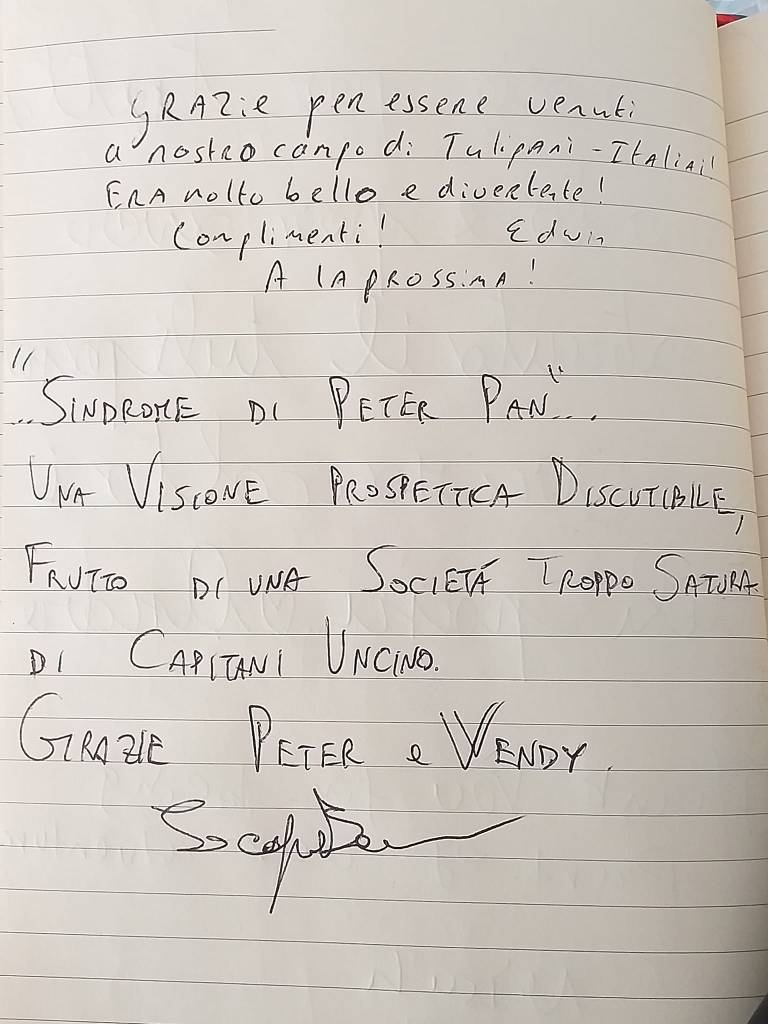 GRAZie per essere venuti
a nostro campo di Tulipani - Italiai!
ERA molto bello e divertente!
Complimenti! Edwin
A la prossima!
"...SINDROME DI PETER PAN"...
UNA VISIONE PROSPETTICA DISCUTIBILE,
FRUTTO DI UNA SOCIETÁ TROPPO SATURA
DI CAPITANI UNCINO.
GRAZIE PETER e WENDY.